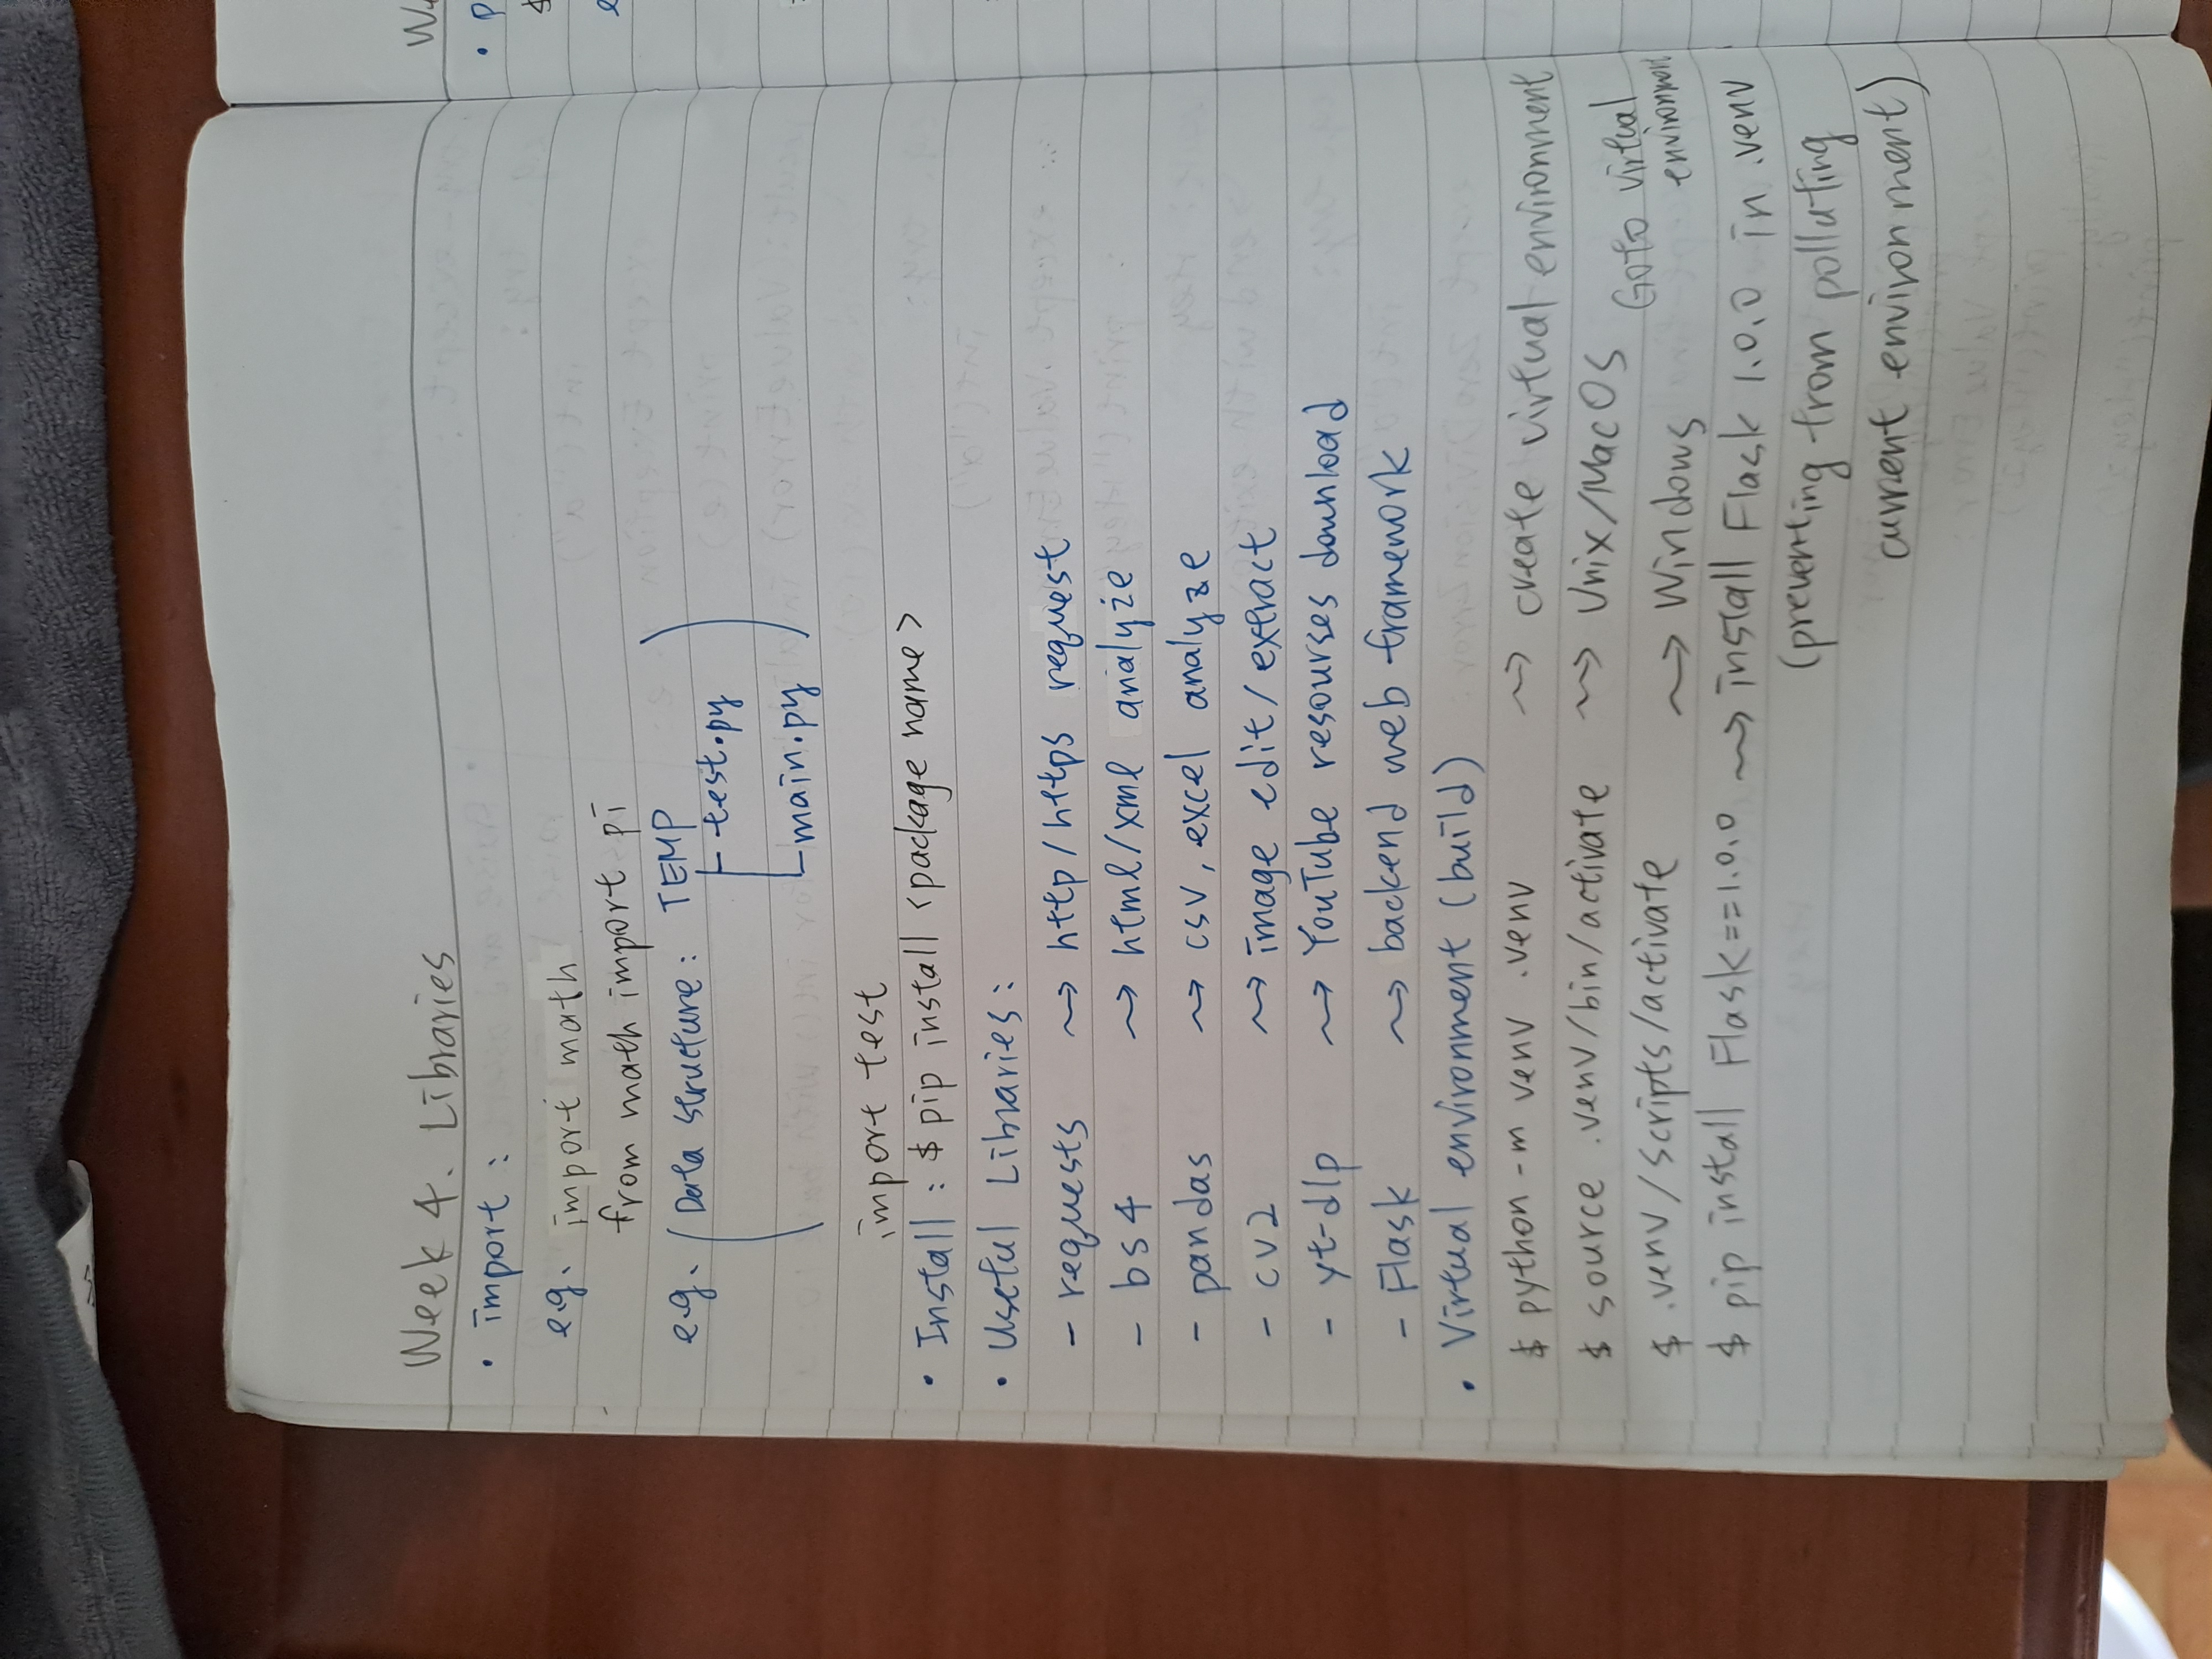 Week 4. Libraries
• import :
e.g. import math
from math import pi
e.g. ( Data structure : TEMP
├ test.py
└ main.py )
import test
• Install : $ pip install <package name>
• Useful Libraries :
- requests ⇝ http/https request
- bs4 ⇝ html/xml analyze
- pandas ⇝ csv, excel analyze
- cv2 ⇝ image edit/extract
- yt-dlp ⇝ YouTube resourses download
- Flask ⇝ backend web framework
• Virtual environment (build)
$ python -m venv .venv ⇝ create virtual environment
$ source .venv/bin/activate ⇝ Unix/MacOS
Goto virtual
environment
$ .venv/scripts/activate ⇝ Windows
$ pip install Flask==1.0.0 ⇝ install Flask 1.0.0 in .venv
(preventing from polluting
current environment)